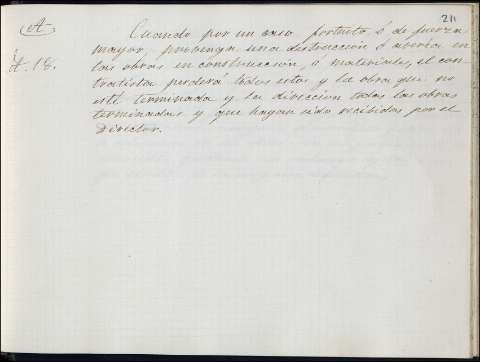 211
(A)
Cuando por un caso fortuito ó de fuerza
mayor, provenga una destruccion ó averia en
A. 18.
las obras en construccion, ó materiales, el con-
tratista perderá todos estos y la obra que no
esté terminada y la direccion todas las obras
terminadas y que hayan sido recibidas por el
Director.